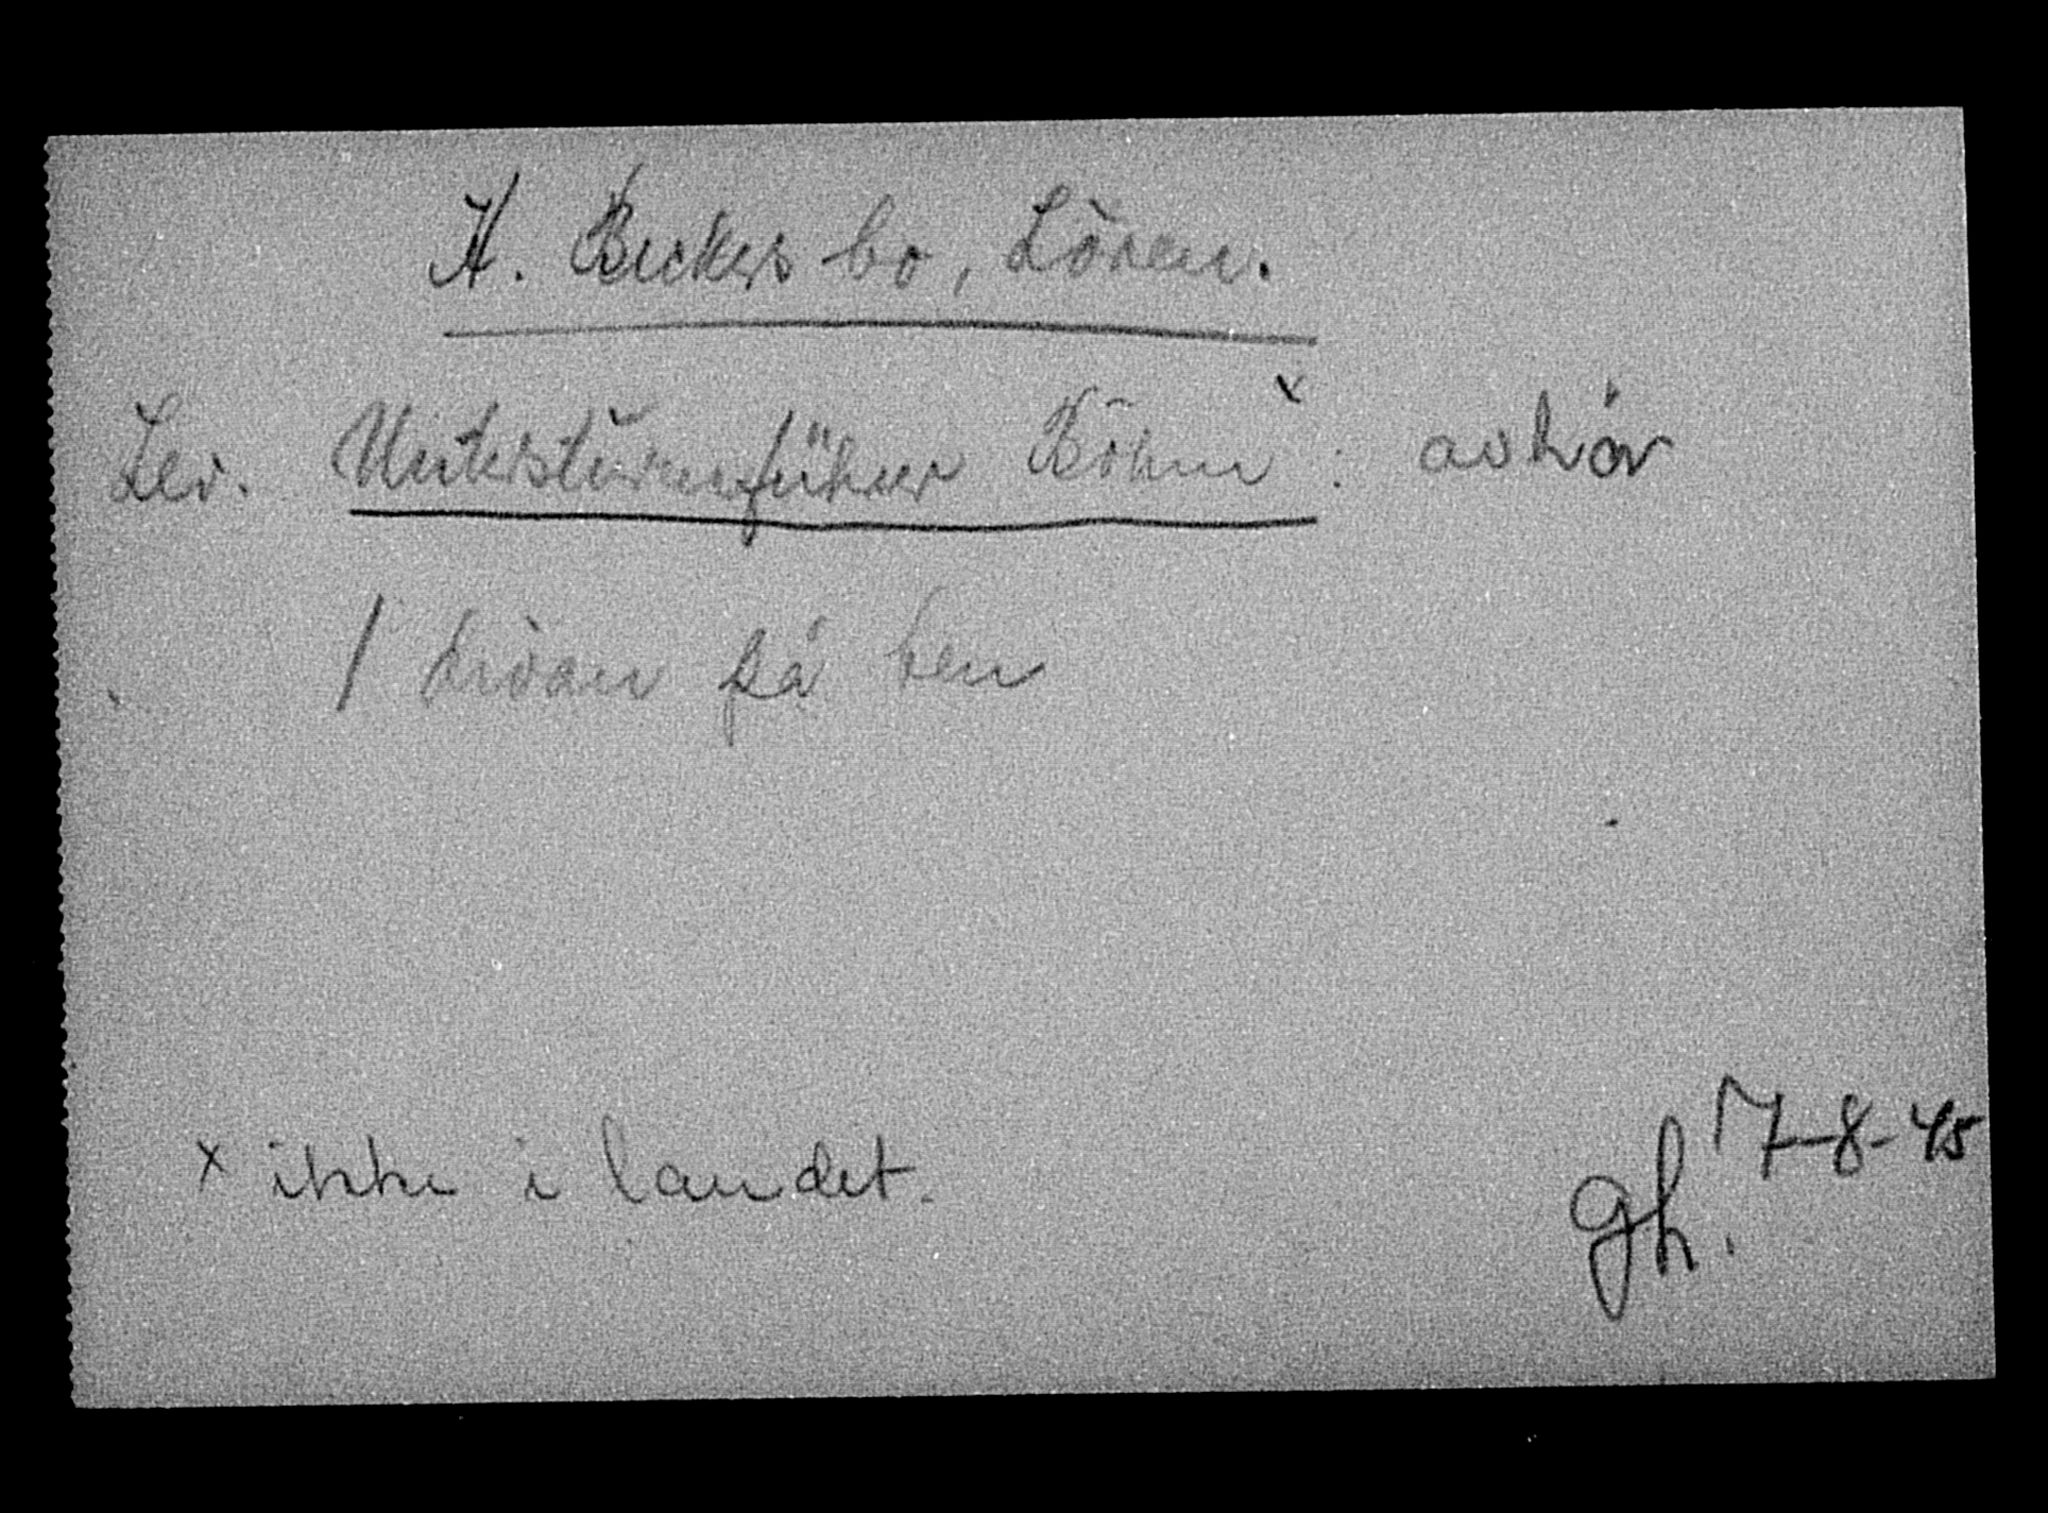 H. Beckers bo, Lören.
Lev. Untersturmführer Böhm x : avhör
1 divan på ben
x ikke i landet.
7-8-45
gh.